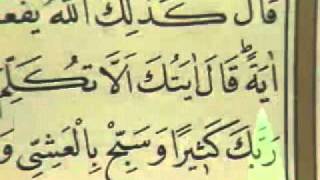 قَالَ كَذٰلِكَ اللّٰهُ يَفْعَ
اٰيَةًۜ قَالَ اٰيَتُكَ اَلَّا تُكَلِّمَ
رَبَّكَ كَث۪يرًا وَسَبِّحْ بِالْعَشِيِّ وَ